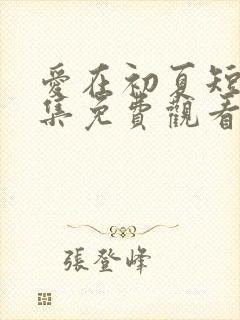 愛在初夏短
集免費觀看
張登峰